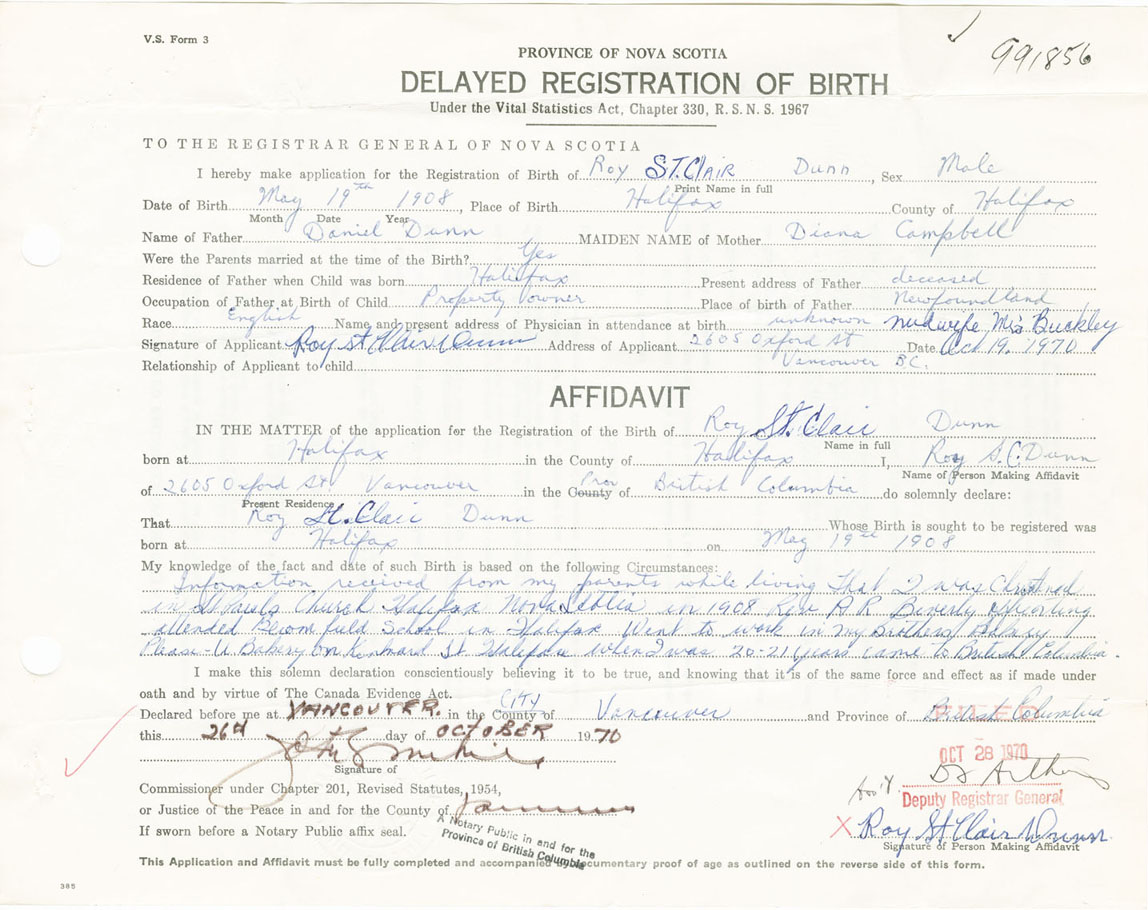 V.S. Form 3
991856
PROVINCE OF NOVA SCOTIA
DELAYED REGISTRATION OF BIRTH
Under the Vital Statistics Act, Chapter 330, R.S.N.S. 1967
TO THE REGISTRAR GENERAL OF NOVA SCOTIA
I hereby make application for the Registration of Birth of Roy ST. Clair Dunn, Sex Male
Print Name in full
Date of Birth May 19th 1908, Place of Birth Halifax County of Halifax
Month Date Year
Name of Father Daniel Dunn MAIDEN NAME of Mother Diana Campbell
Were the Parents married at the time of the Birth? Yes
Residence of Father when Child was born Halifax Present address of Father deceased
Occupation of Father at Birth of Child Property owner Place of birth of Father Newfoundland
Race English Name and present address of Physician in attendance at birth unknown midwife Mrs. Buckley
Signature of Applicant Roy St Clair Dunn Address of Applicant 2605 Oxford St Date Oct 19, 1970
Vancouver B.C.
Relationship of Applicant to child
AFFIDAVIT
IN THE MATTER of the application for the Registration of the Birth of Roy St. Clair Dunn
Name in full
born at Halifax in the County of Halifax I, Roy S.C. Dunn
Name of Person Making Affidavit
of 2605 Oxford St Vancouver in the County of Prov British Columbia do solemnly declare:
Present Residence
That Roy St. Clair Dunn Whose Birth is sought to be registered was
born at Halifax on May 19th 1908
My knowledge of the fact and date of such Birth is based on the following Circumstances:
Information received from my parents while living That I was Christned
in St Pauls Church Halifax Nova Scotia in 1908 Rev.
attended Bloomfield School in Halifax Went to work in My Brothers Bakery
Please-U Bakery on Kintnard St Halifax when I was 20-21 years came to British Columbia.
I make this solemn declaration conscientiously believing it to be true, and knowing that it is of the same force and effect as if made under
oath and by virtue of The Canada Evidence Act.
Declared before me at VANCOUVER. in the County of CITY Vancouver and Province of British Columbia
this 26th day of OCTOBER 1970
Signature of
OCT 28 1970
Commissioner under Chapter 201, Revised Statutes, 1954,
Deputy Registrar General
or Justice of the Peace in and for the County of
A Notary Public in and for the
Province of British Columbia
X Roy St Clair Dunn
If sworn before a Notary Public affix seal.
Signature of Person Making Affidavit
This Application and Affidavit must be fully completed and accompanied by documentary proof of age as outlined on the reverse side of this form.
385